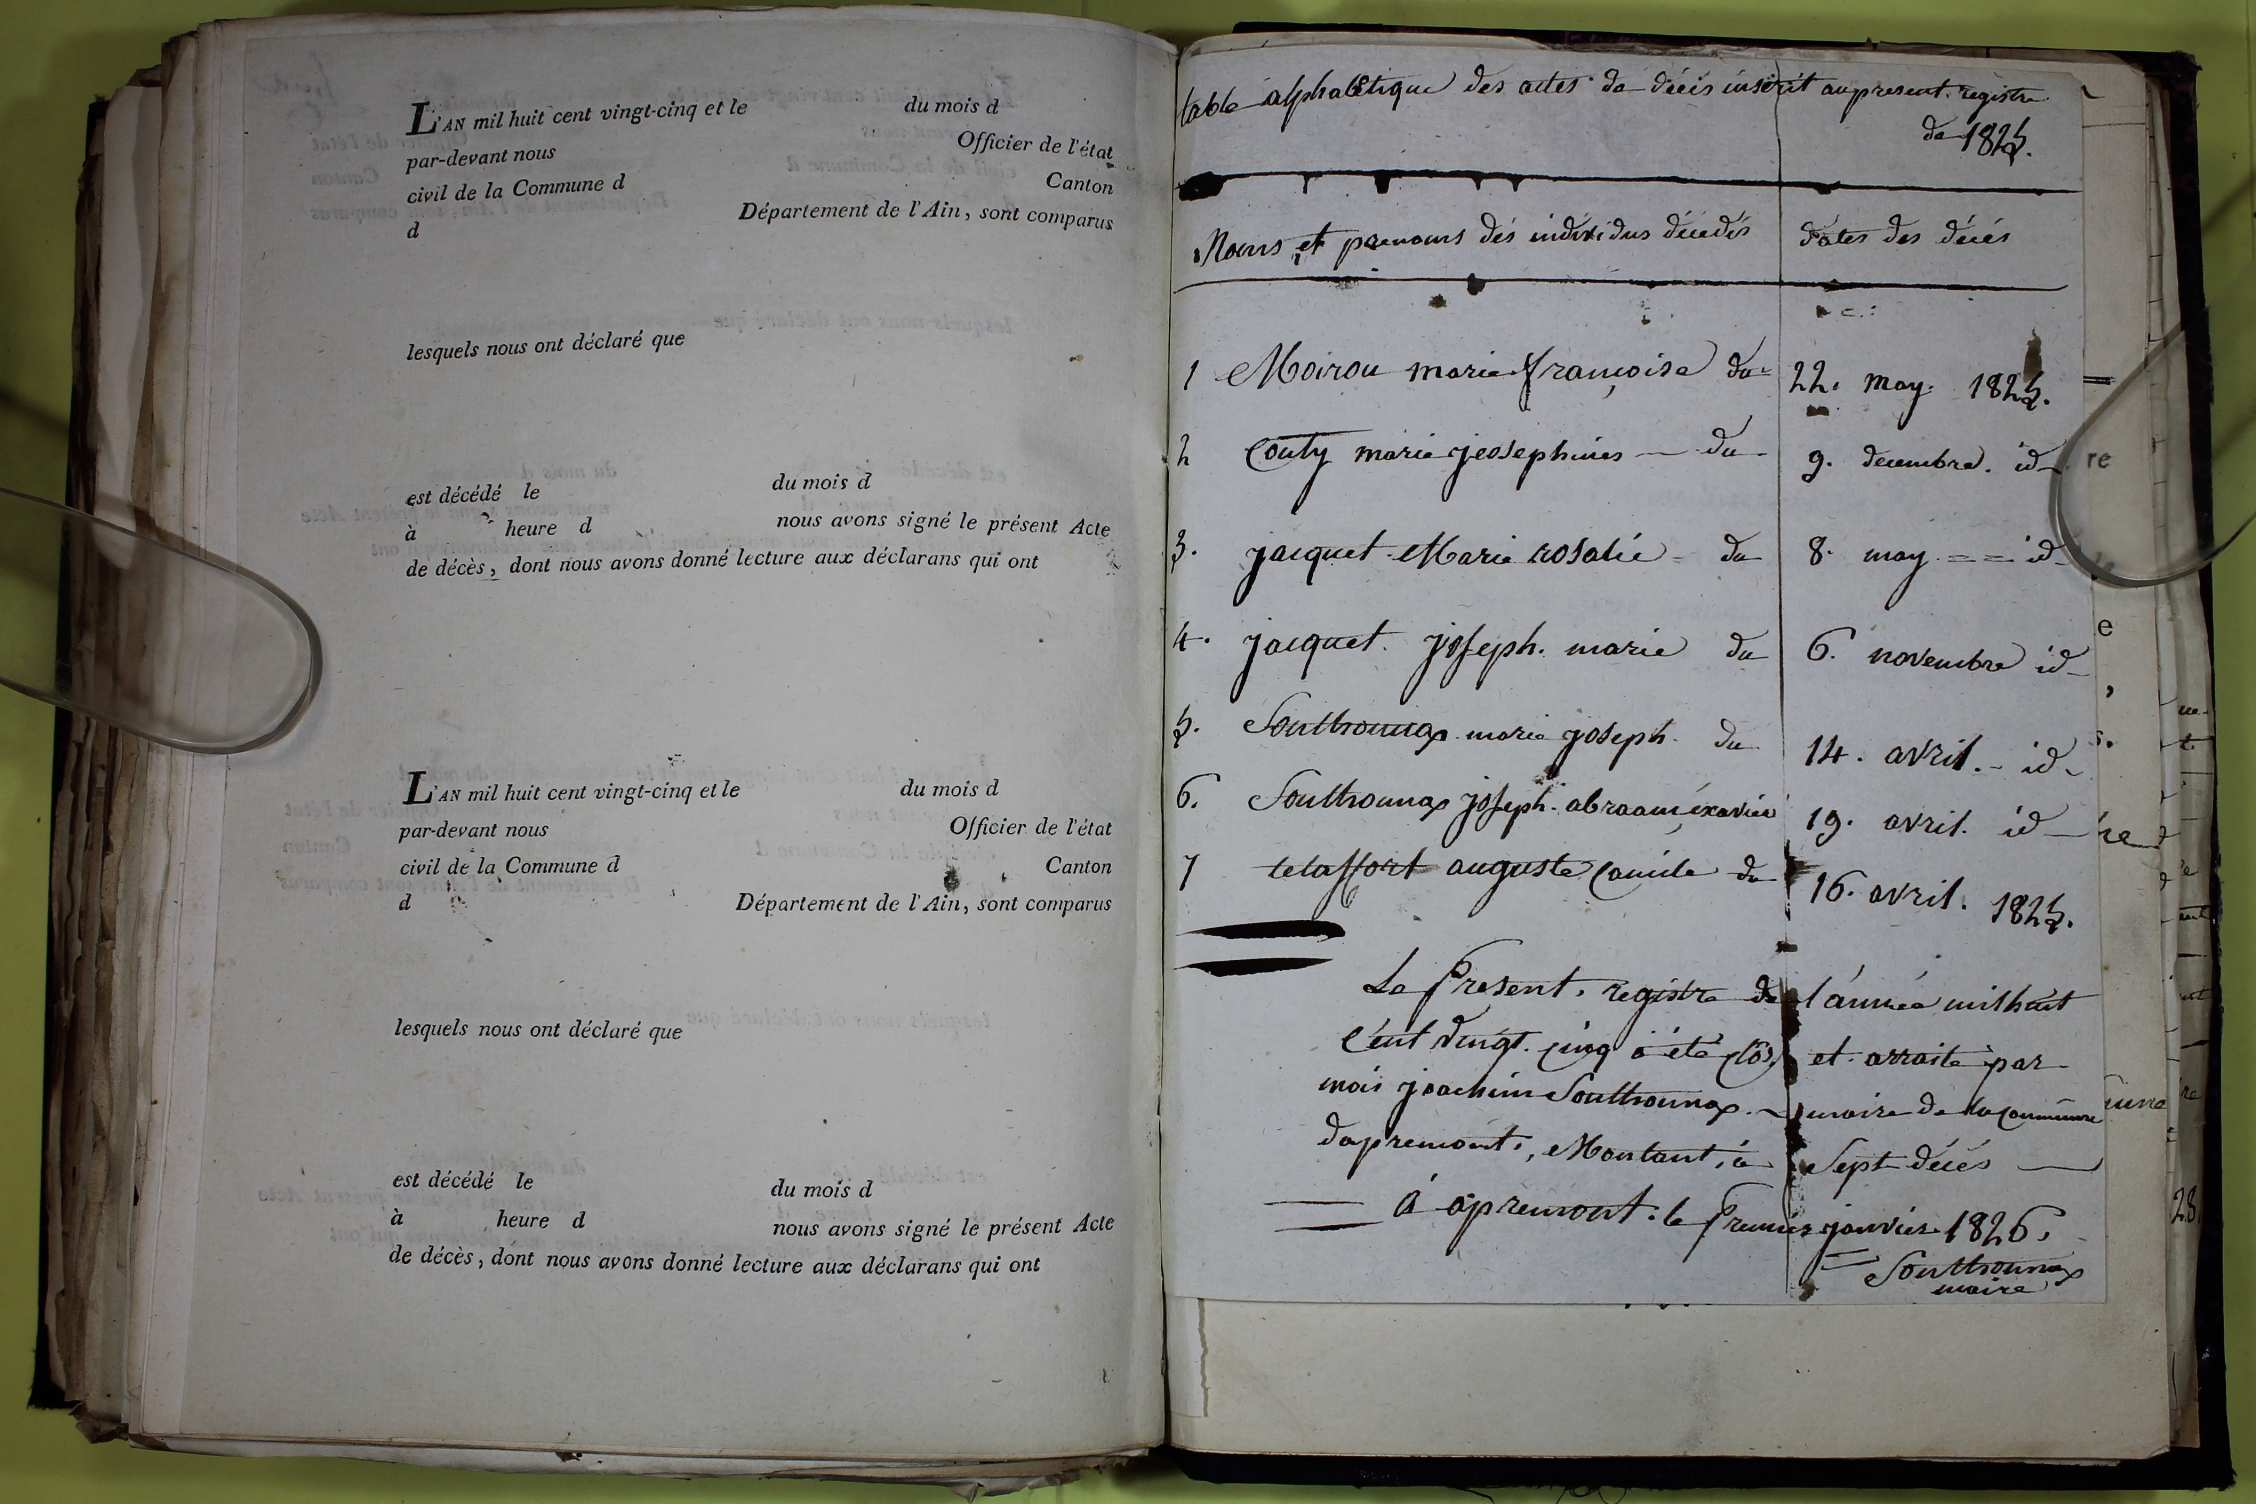 L'AN mil huit cent vingt-cinq et le du mois d
par-devant nous Officier de l'état
civil de la Commune d Canton
d Département de l'Ain, sont comparus
lesquels nous ont déclaré que
est décédé le du mois d
à heure d nous avons signé le présent Acte
de décès, dont nous avons donné lecture aux déclarans qui ont
L'AN mil huit cent vingt-cinq et le du mois d
par-devant nous Officier de l'état
civil de la Commune d Canton
d Département de l'Ain, sont comparus
lesquels nous ont déclaré que
est décédé le du mois d
à heure d nous avons signé le présent Acte
de décès, dont nous avons donné lecture aux déclarans qui ont
table alphabétique des actes de décès inscrit au present registre
de 1825.
Noms et prenoms des individus décédés dates des décés
1 Moirou marie françoise du 22. may. 1825.
2 Couty marie jeosephines du 9. decembre. id
3. jacquet Marie rosalie du 8. may == id
4. jacquet. joseph. marie du 6. novembre id
5. Southonnax marie joseph. du 14. avril. id
6. Southonnax joseph. abraam exavier 19. avril. id
7 telaffort auguste Camile du 16. avril. 1825.
Le Présent. registre de l'année mil huit
Cent vingt. cinq a été clos et arraite par
mois joachim Southonnax. maire de la commune
dapremont, Montant, à Sept décés
à apremont. le Premier janvier 1826.
Southonnax
maire
re
e
28